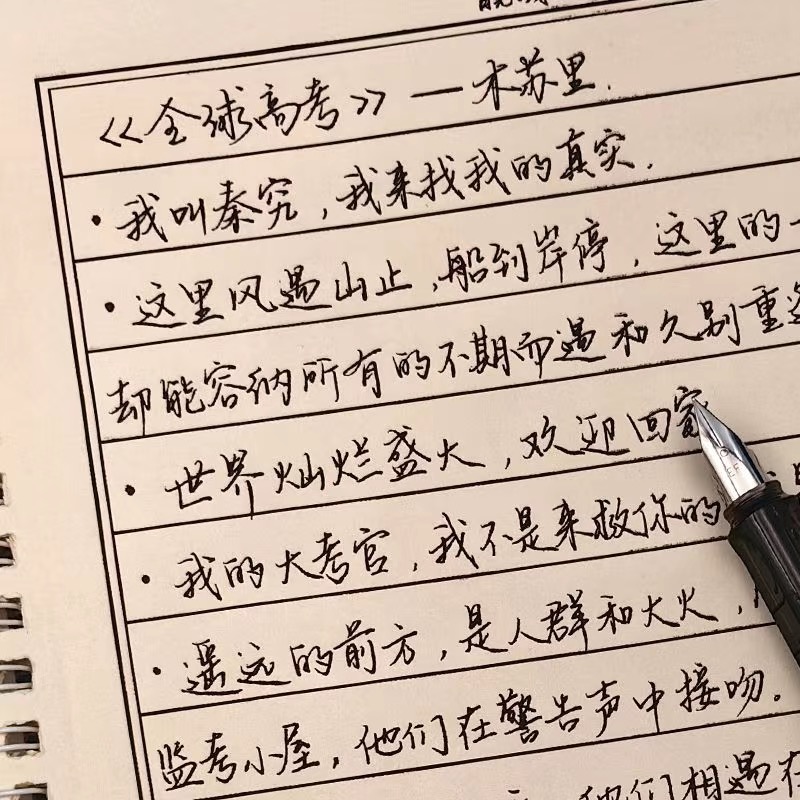 《全球高考》——木苏里.
·我叫秦究,我来找我的真实.
·这里风遇山止,船到岸停,这里的一
却能容纳所有的不期而遇和久别重
·世界灿烂盛大,欢迎回家
·我的大考官,我不是来救你的
·遥远的前方,是人群和大火,
监考小屋,他们在警告声中接吻。
他们相遇在